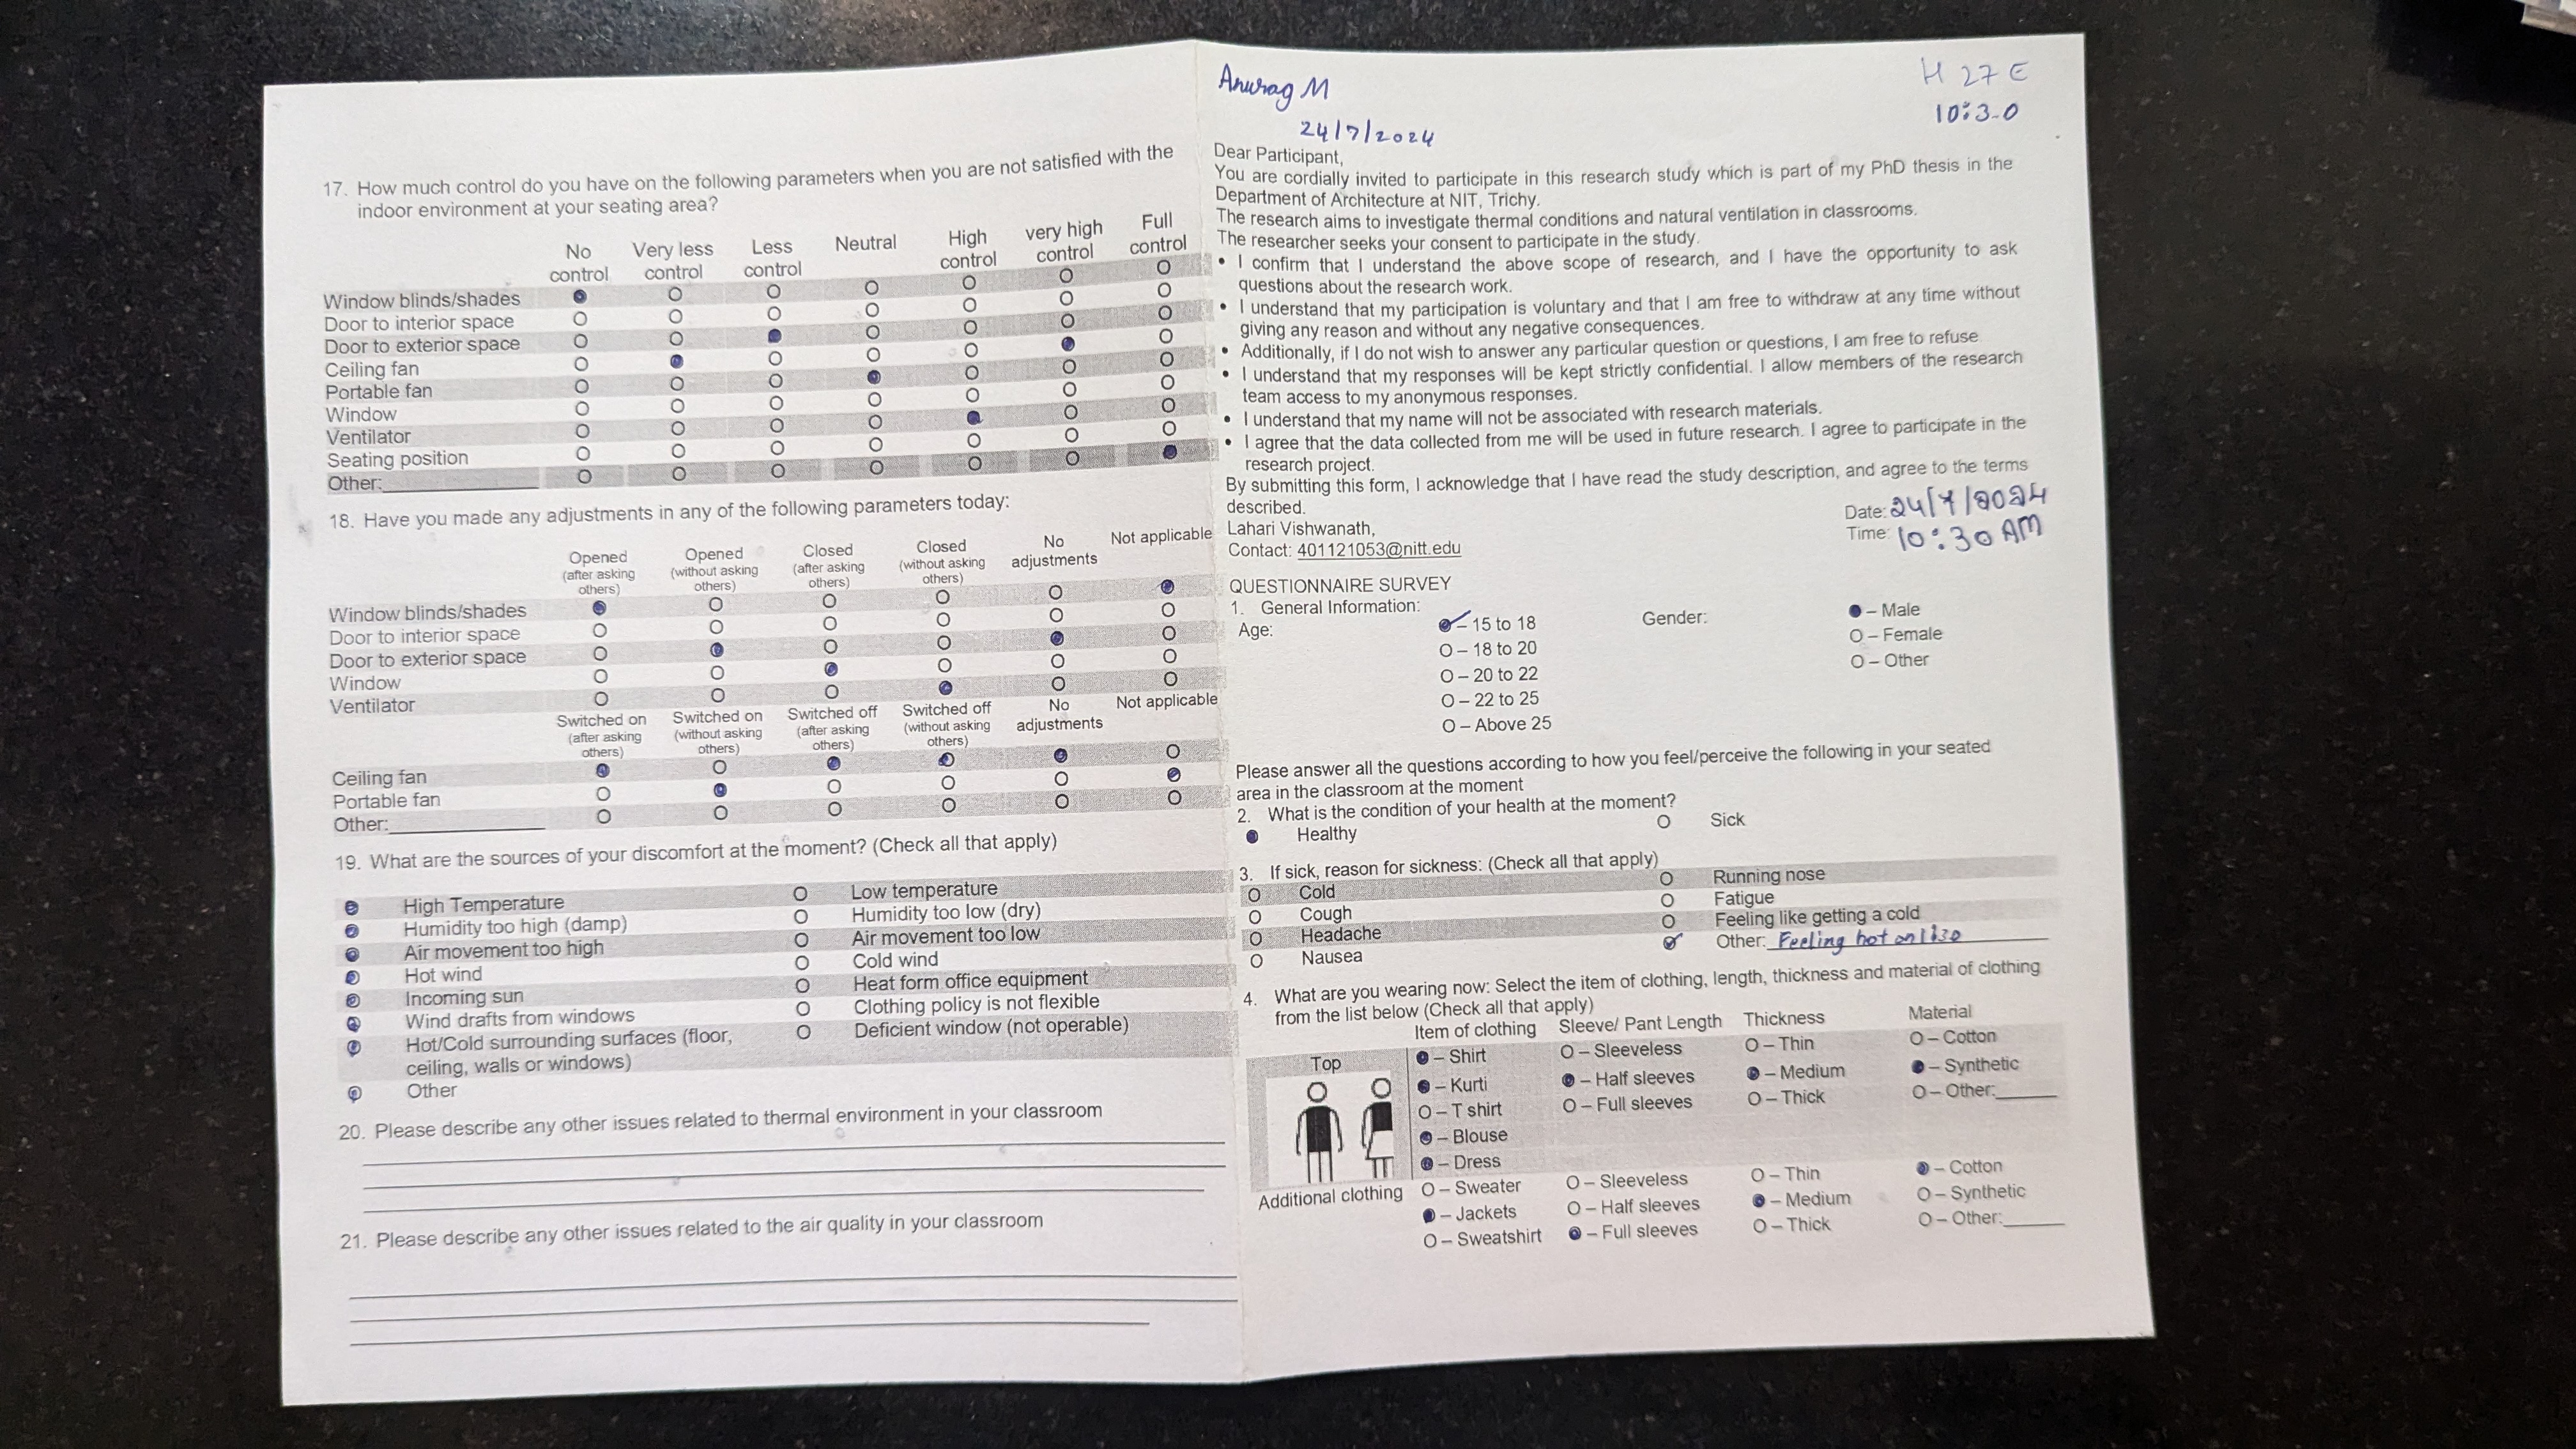 17. How much control do you have on the following parameters when you are not satisfied with the
indoor environment at your seating area?
No control Very less control Less control Neutral High control very high control Full control
Window blinds/shades
Door to interior space
Door to exterior space
Ceiling fan
Portable fan
Window
Ventilator
Seating position
Other:
18. Have you made any adjustments in any of the following parameters today:
Opened (after asking others) Opened (without asking others) Closed (after asking others) Closed (without asking others) No adjustments Not applicable
Window blinds/shades
Door to interior space
Door to exterior space
Window
Ventilator
Switched on (after asking others) Switched on (without asking others) Switched off (after asking others) Switched off (without asking others) No adjustments Not applicable
Ceiling fan
Portable fan
Other:
19. What are the sources of your discomfort at the moment? (Check all that apply)
High Temperature Low temperature
Humidity too high (damp) Humidity too low (dry)
Air movement too high Air movement too low
Hot wind Cold wind
Incoming sun Heat form office equipment
Wind drafts from windows Clothing policy is not flexible
Hot/Cold surrounding surfaces (floor, Deficient window (not operable)
ceiling, walls or windows)
Other
20. Please describe any other issues related to thermal environment in your classroom
21. Please describe any other issues related to the air quality in your classroom
Anurag M
24/7/2024
H 27 E
10:3-0
Dear Participant,
You are cordially invited to participate in this research study which is part of my PhD thesis in the
Department of Architecture at NIT, Trichy.
The research aims to investigate thermal conditions and natural ventilation in classrooms.
The researcher seeks your consent to participate in the study.
• I confirm that I understand the above scope of research, and I have the opportunity to ask
questions about the research work.
• I understand that my participation is voluntary and that I am free to withdraw at any time without
giving any reason and without any negative consequences.
• Additionally, if I do not wish to answer any particular question or questions, I am free to refuse
• I understand that my responses will be kept strictly confidential. I allow members of the research
team access to my anonymous responses.
• I understand that my name will not be associated with research materials.
• I agree that the data collected from me will be used in future research. I agree to participate in the
research project.
By submitting this form, I acknowledge that I have read the study description, and agree to the terms
described.
Lahari Vishwanath,
Contact: 401121053@nitt.edu
Date: 24/7/2024
Time: 10:30 AM
QUESTIONNAIRE SURVEY
1. General Information:
Age: – 15 to 18 Gender: – Male
– 18 to 20 – Female
– 20 to 22 – Other
– 22 to 25
– Above 25
Please answer all the questions according to how you feel/perceive the following in your seated
area in the classroom at the moment
2. What is the condition of your health at the moment?
Healthy Sick
3. If sick, reason for sickness: (Check all that apply)
Cold Running nose
Cough Fatigue
Headache Feeling like getting a cold
Nausea Other: Feeling hot
4. What are you wearing now: Select the item of clothing, length, thickness and material of clothing
from the list below (Check all that apply)
Item of clothing Sleeve/ Pant Length Thickness Material
Top – Shirt – Sleeveless – Thin – Cotton
– Kurti – Half sleeves – Medium – Synthetic
– T shirt – Full sleeves – Thick – Other:
– Blouse
– Dress
Additional clothing – Sweater – Sleeveless – Thin – Cotton
– Jackets – Half sleeves – Medium – Synthetic
– Sweatshirt – Full sleeves – Thick – Other: